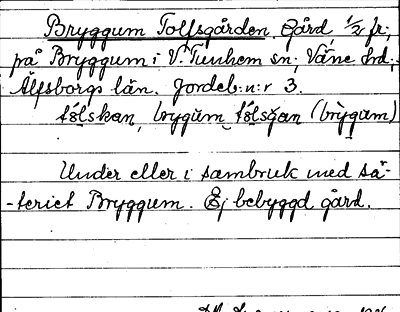 Bryggum Tolfsgården. Gård, 1/2 fr;
på Bryggum i V. Tunhem sn; Väne hd;
Älfsborgs län. Jordeb:n:r 3.
brygŭm (brỳgum)
Under eller i sambruk med sä-
-teriet Bryggum. Ej bebyggd gård.